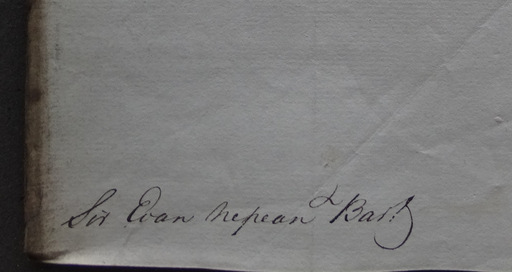 Sir Evan Nepean Bart